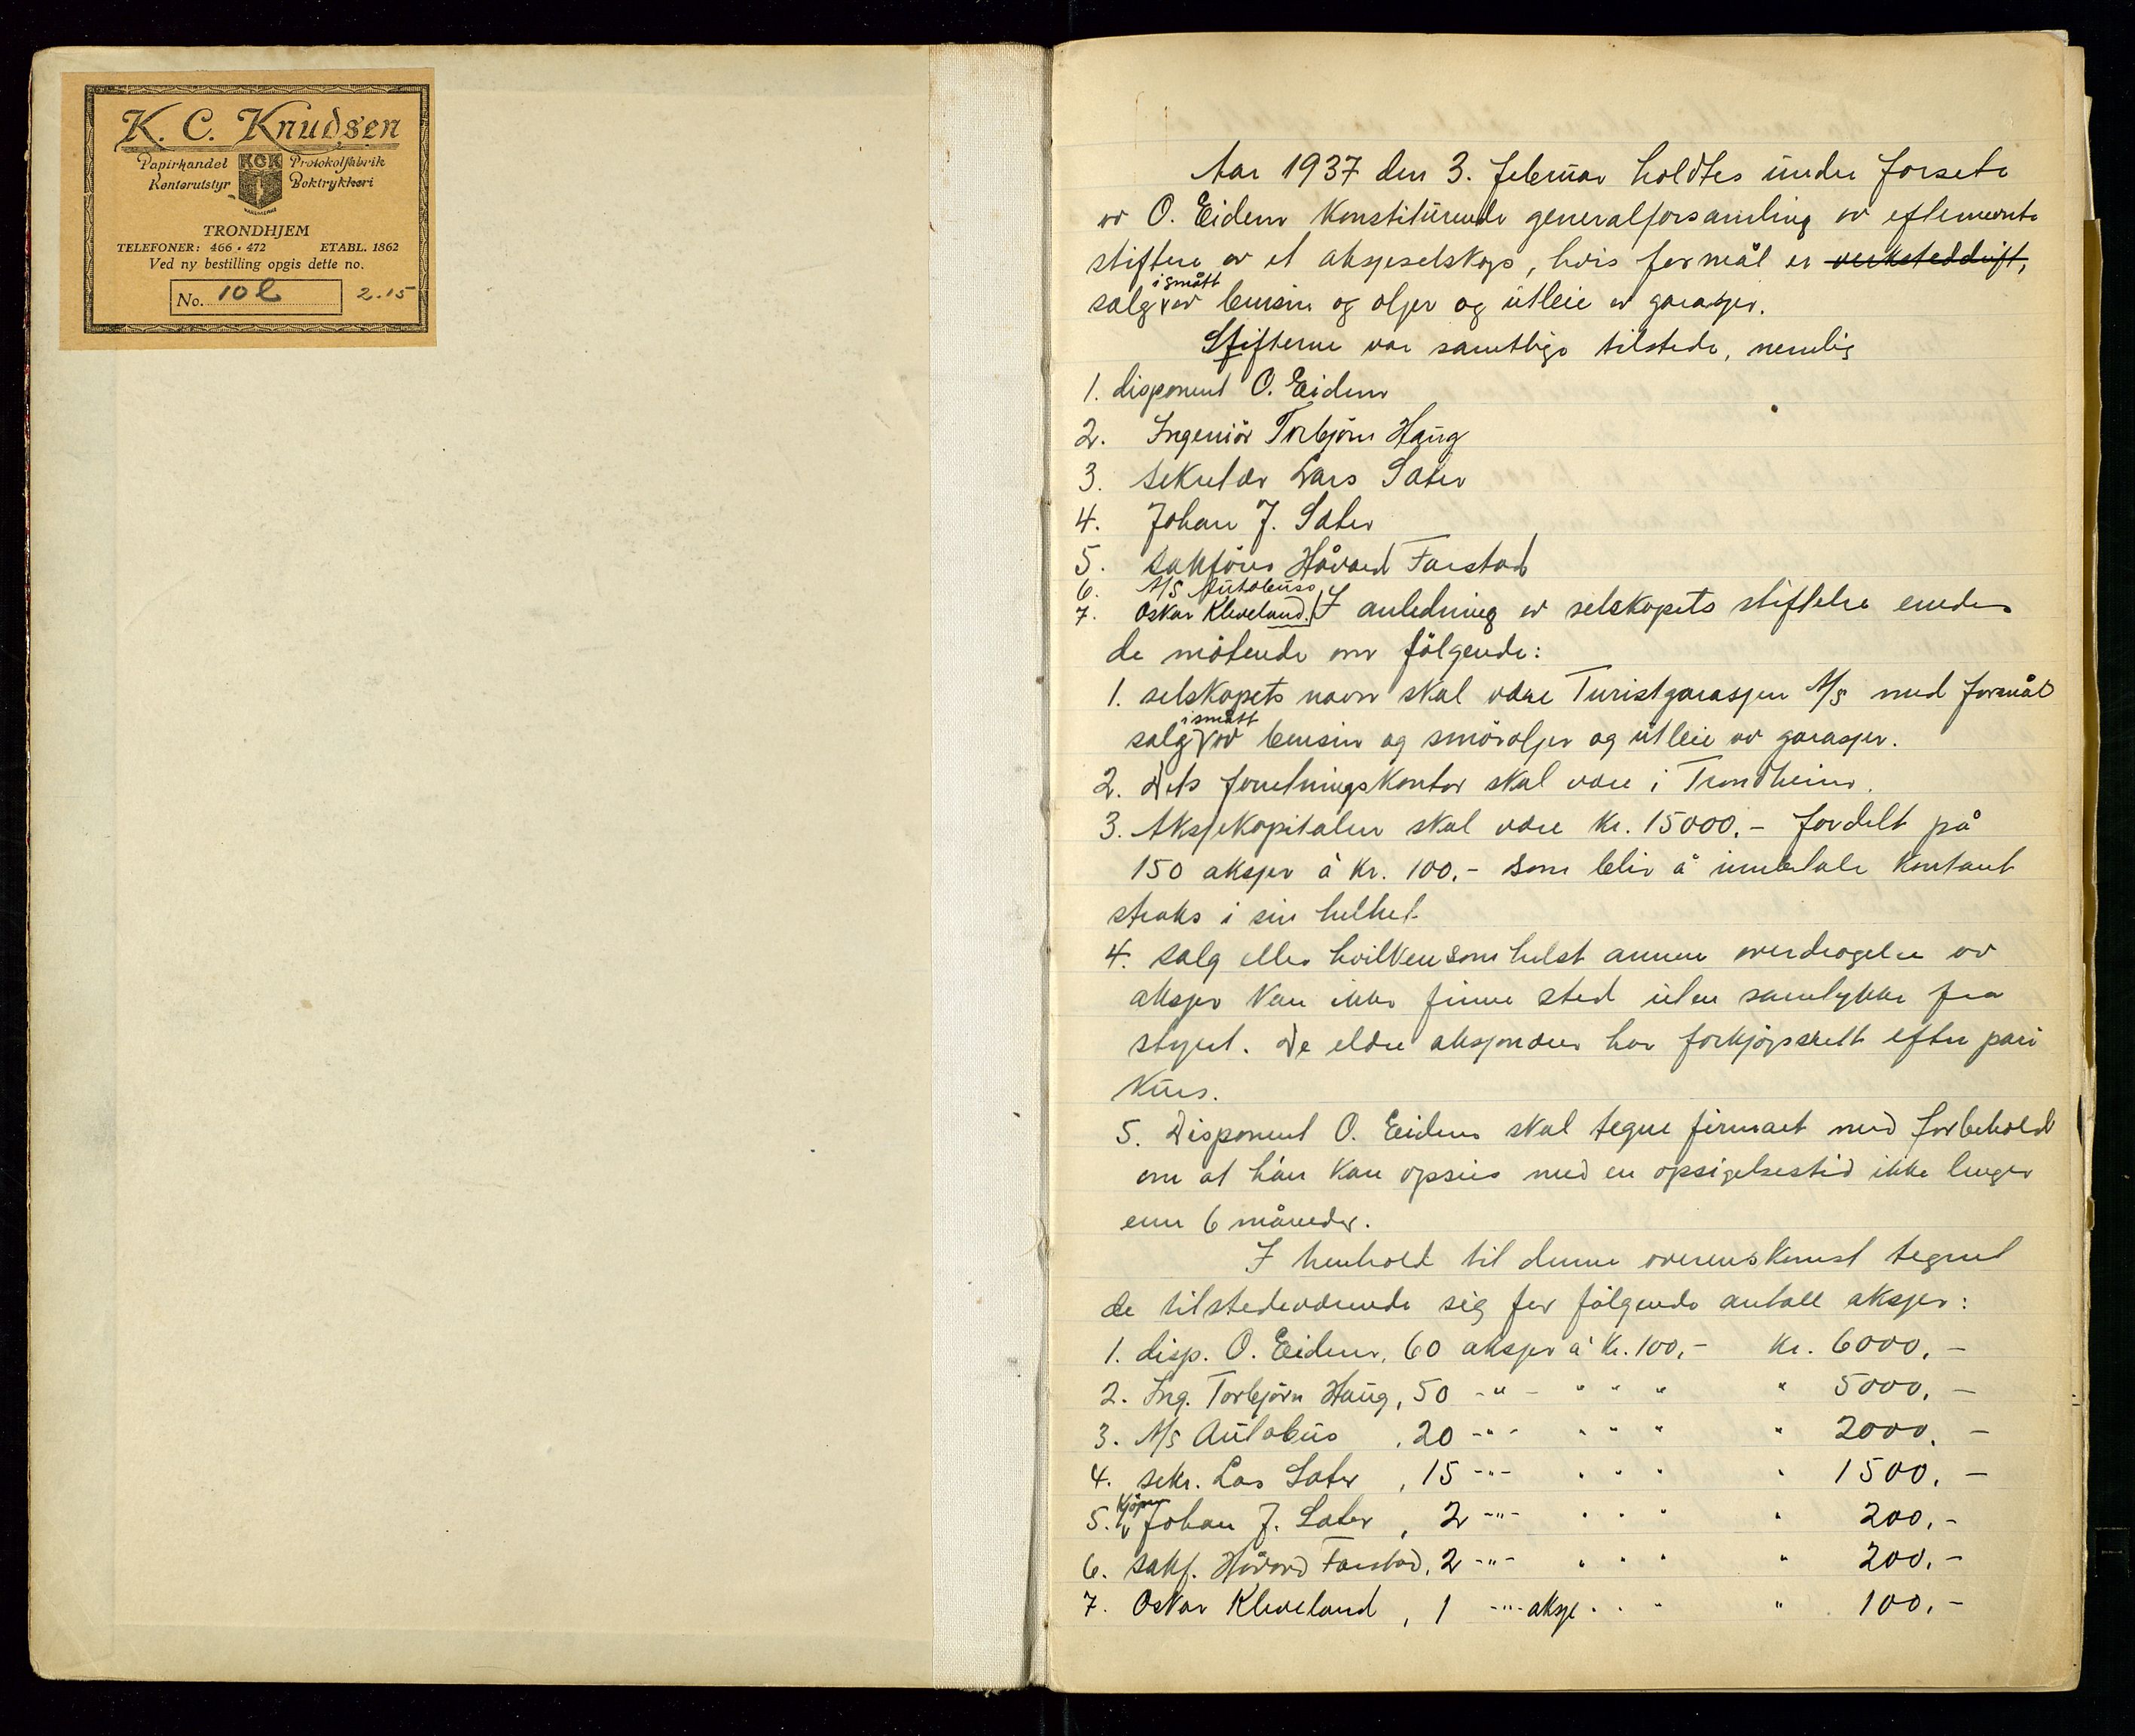 K. C. Knudsen
Papirhandel KCK Protokolfabrik
Kontorutstyr Boktrykkeri
TRONDHJEM
TELEFONER: 466 • 472 ETABL. 1862
Ved ny bestilling opgis dette no.
No. 10 l 2.15
Aar 1937 den 3. februar holdtes under forsete
av O. Eidem konstituerende generalforsamling av efternevnte
stiftere av et aksjeselskap, hvis formål er verksteddrift,
i smått
salg av bensin og oljer og utleie av garasjer.
Stifterne var samtlige tilstede, nemlig
1. disponent O. Eidem
2. Ingeniör Torbjörn Haug
3. sekretær Lars Sæter
4. Johan J. Sæter
5. sakförer Håvard Farstad
6. A/S Autobuss
7. Oskar Kleveland. I anledning av selskapets stiftelse enedes
de mötende om fölgende:
1. selskapets navn skal være Turistgarasjen A/S med formål
i smått
salg av bensin og smöroljer og utleie av garasjer.
2. Dets forretningskontor skal være i Trondheim.
3. Aksjekapitalen skal være kr. 15000.- fordelt på
150 aksjer à kr. 100.- som blir å innbetale kontant
straks i sin helhet.
4. salg eller hvilkensomhelst annen overdragelse av
aksjer kan ikke finne sted uten samtykke fra
styret. De eldre aksjonærer har forkjöpsrett efter pari
kurs.
5. Disponent O. Eidem skal tegne firmaet med forbehold
om at han kan opsies med en opsigelsestid ikke lenger
enn 6 måneder.
I henhold til denne overenskomst tegnet
de tilstedeværende sig for fölgende antall aksjer:
1. disp. O. Eidem, 60 aksjer à kr. 100,- kr. 6000,-
2. Ing. Torbjörn Haug, 50 -"- " " " " 5000,-
3. A/S Autobus , 20 -"- " " " " 2000,-
4. sekr. Lars Sæter , 15 -"- " " " " 1500,-
kjöpm
5. Johan J. Sæter , 2 -"- " " " " 200,-
6. sakf. Håvard Farstad, 2 -"- " " " " 200,-
7. Oskar Kleveland , 1 -"- aksje " " " " 100,-